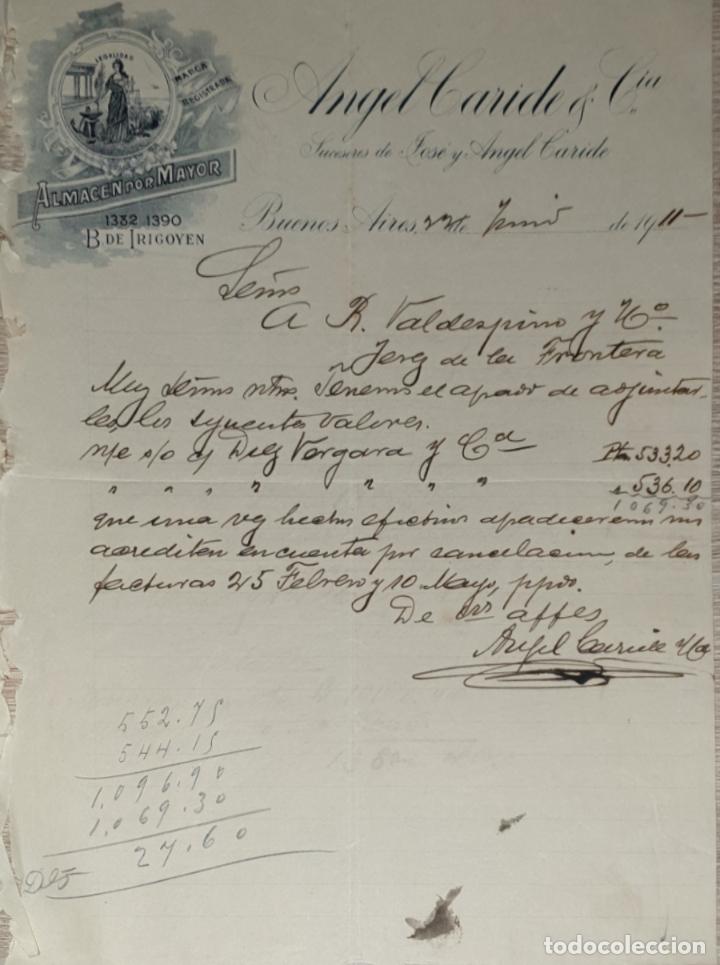 LEGALIDAD
MARCA
REGISTRADA
ALMACEN POR MAYOR
1382 1390
B DE IRIGOYEN
Angel Caride & Cía
Sucesores de José y Angel Caride
Buenos Aires, 22 de Junio de 1911-
Señrs
A R. Valdespino y Co.
Jerez de la Frontera
Muy Señrs ntros. Tenemos el agrado de adjuntar-
les los siguientes valores.
n/e s/o Diez Vergara y Ca Ptas 533.20
" " " " " " " " 536.10
1069.30
que una vez hechos efectivos agradeceremos nos
acrediten en cuenta por cancelacion, de las
facturas 25 Febrero y 10 Mayo, ppdo.
De Vds affes
Angel Caride y Ca
552.75
544.15
1,096.90
1,069.30
27.60
todocoleccion